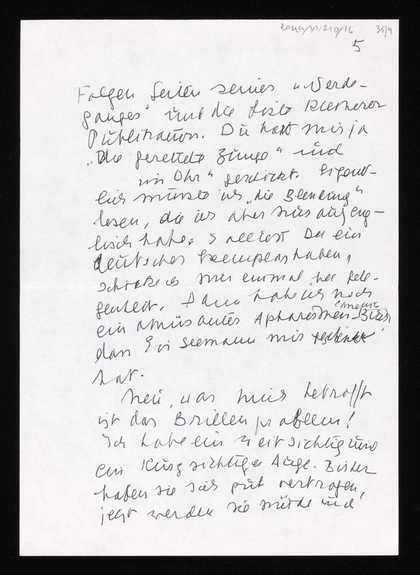 36/9
5
Folgen Seiten seines „Werde-
ganges“ und die Liste Bisheriger
Publikation. Du hast mir ja
„Die gerettete Zunge“ und
im Ohr“ geschickt. Eigent-
lich müsste ich „die Blendung“
lesen, die ich aber nur auf eng-
lisch habe. Solltest Du ein
deutsches Exemplar haben,
schicke es mir einmal bei Gele-
genheit. Dann habe ich noch
ein amüsantes Aphorismen-Buch
das Evi Seemann mir
hat.
Nein, was mich betrifft
ist das Brillenproblem!
Ich habe ein weitsichtig und
ein kurzsichtiges Auge. Bisher
haben sie sich gut vertragen,
jetzt werden sie müde und